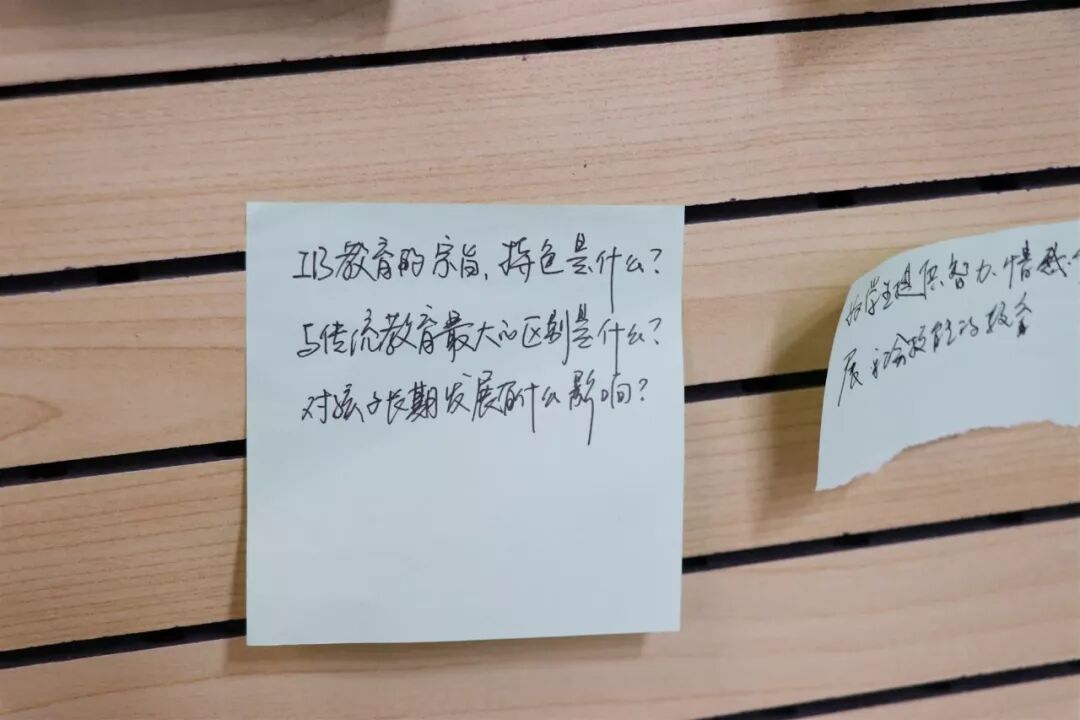 IB教育的宗旨，特色是什么？
与传统教育最大的区别是什么？
对孩子长期发展有什么影响？
给学生提供智力、情感、
展和学会技能的机会